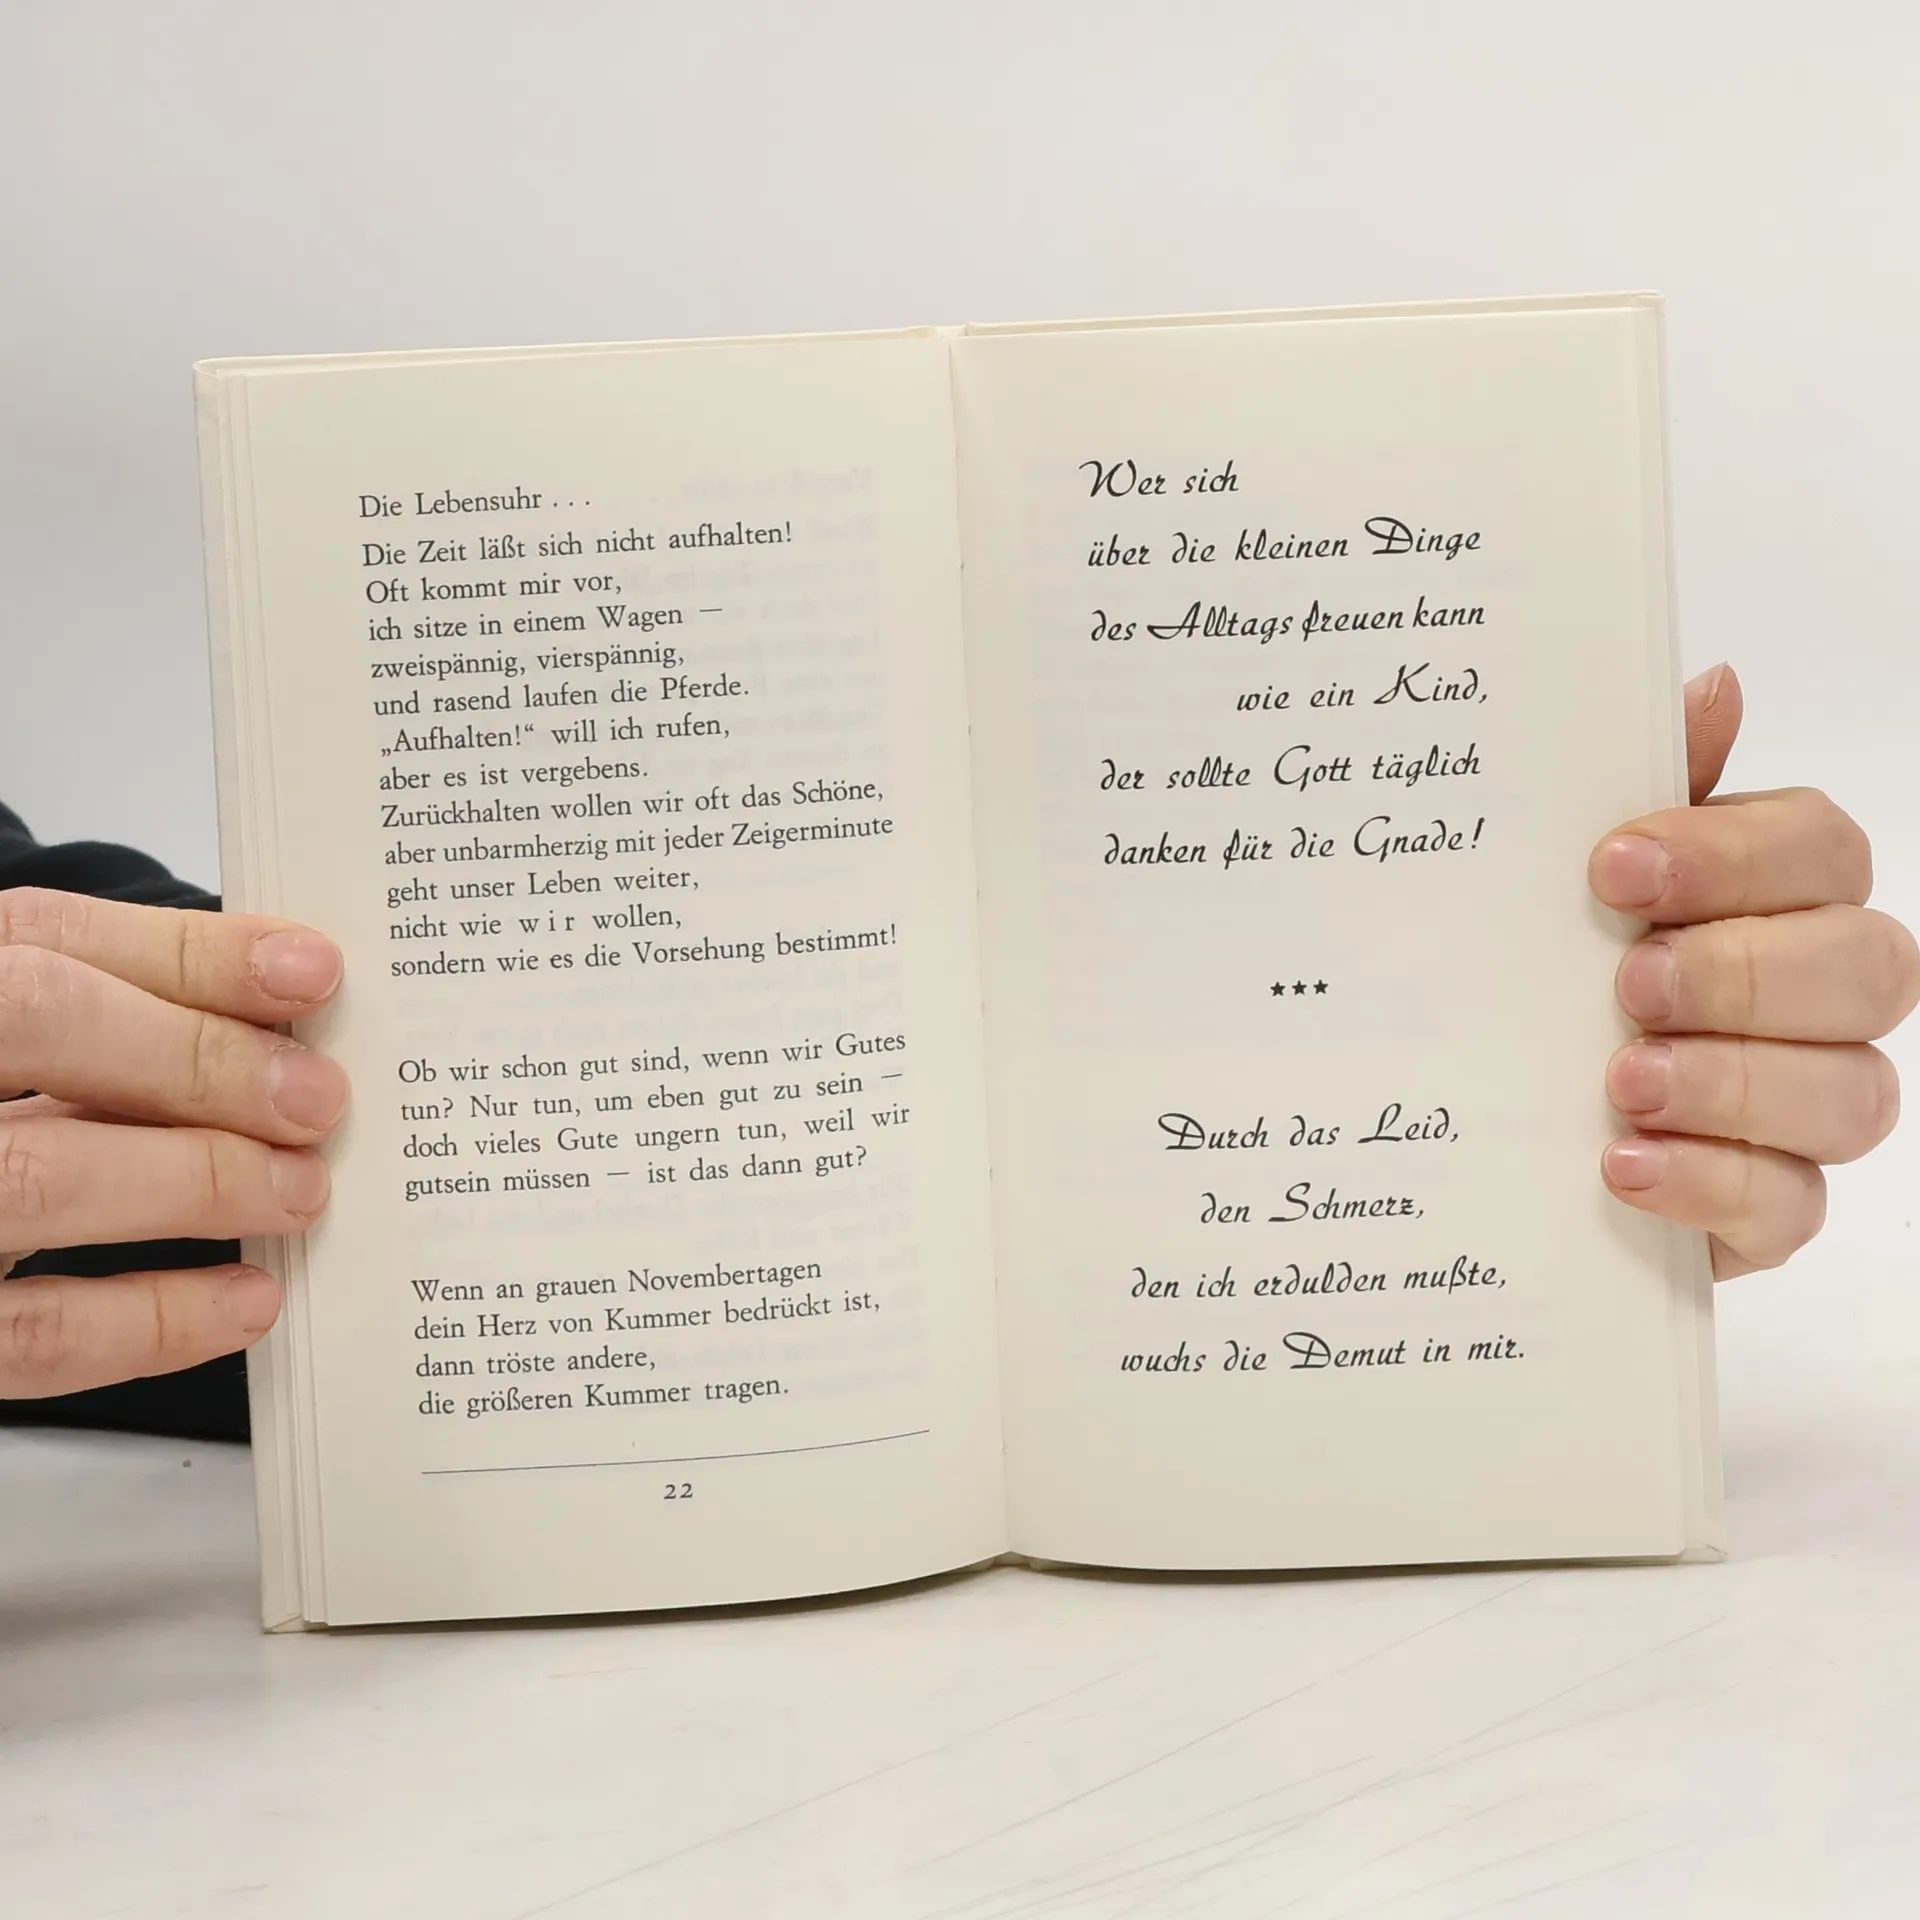 Die Lebensuhr . . .
Die Zeit läßt sich nicht aufhalten!
Oft kommt mir vor,
ich sitze in einem Wagen —
zweispännig, vierspännig,
und rasend laufen die Pferde.
„Aufhalten!“ will ich rufen,
aber es ist vergebens.
Zurückhalten wollen wir oft das Schöne,
aber unbarmherzig mit jeder Zeigerminute
geht unser Leben weiter,
nicht wie w i r wollen,
sondern wie es die Vorsehung bestimmt!
Ob wir schon gut sind, wenn wir Gutes
tun? Nur tun, um eben gut zu sein —
doch vieles Gute ungern tun, weil wir
gutsein müssen — ist das dann gut?
Wenn an grauen Novembertagen
dein Herz von Kummer bedrückt ist,
dann tröste andere,
die größeren Kummer tragen.
22
Wer sich
über die kleinen Dinge
des Alltags freuen kann
wie ein Kind,
der sollte Gott täglich
danken für die Gnade!
★★★
Durch das Leid,
den Schmerz,
den ich erdulden mußte,
wuchs die Demut in mir.